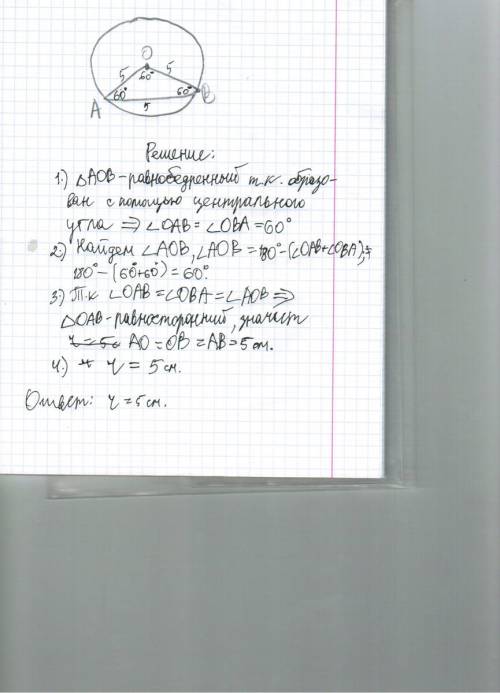 O
5
5
60°
A
60°
60°
B
5
Решение:
1.) △AOB-равнобедренный т.к. образо-
ван с помощью центрального
угла ⇒ ∠OAB = ∠OBA = 60°
2.) Найдем ∠AOB, ∠AOB = 180° - (∠OAB+∠OBA);
180° - (60°+60°) = 60°.
3) Т.к ∠OAB = ∠OBA = ∠AOB ⇒
△OAB-равносторонний, значит
AO = OB = AB = 5 см.
4.) r = 5 см.
Ответ: r = 5 см.